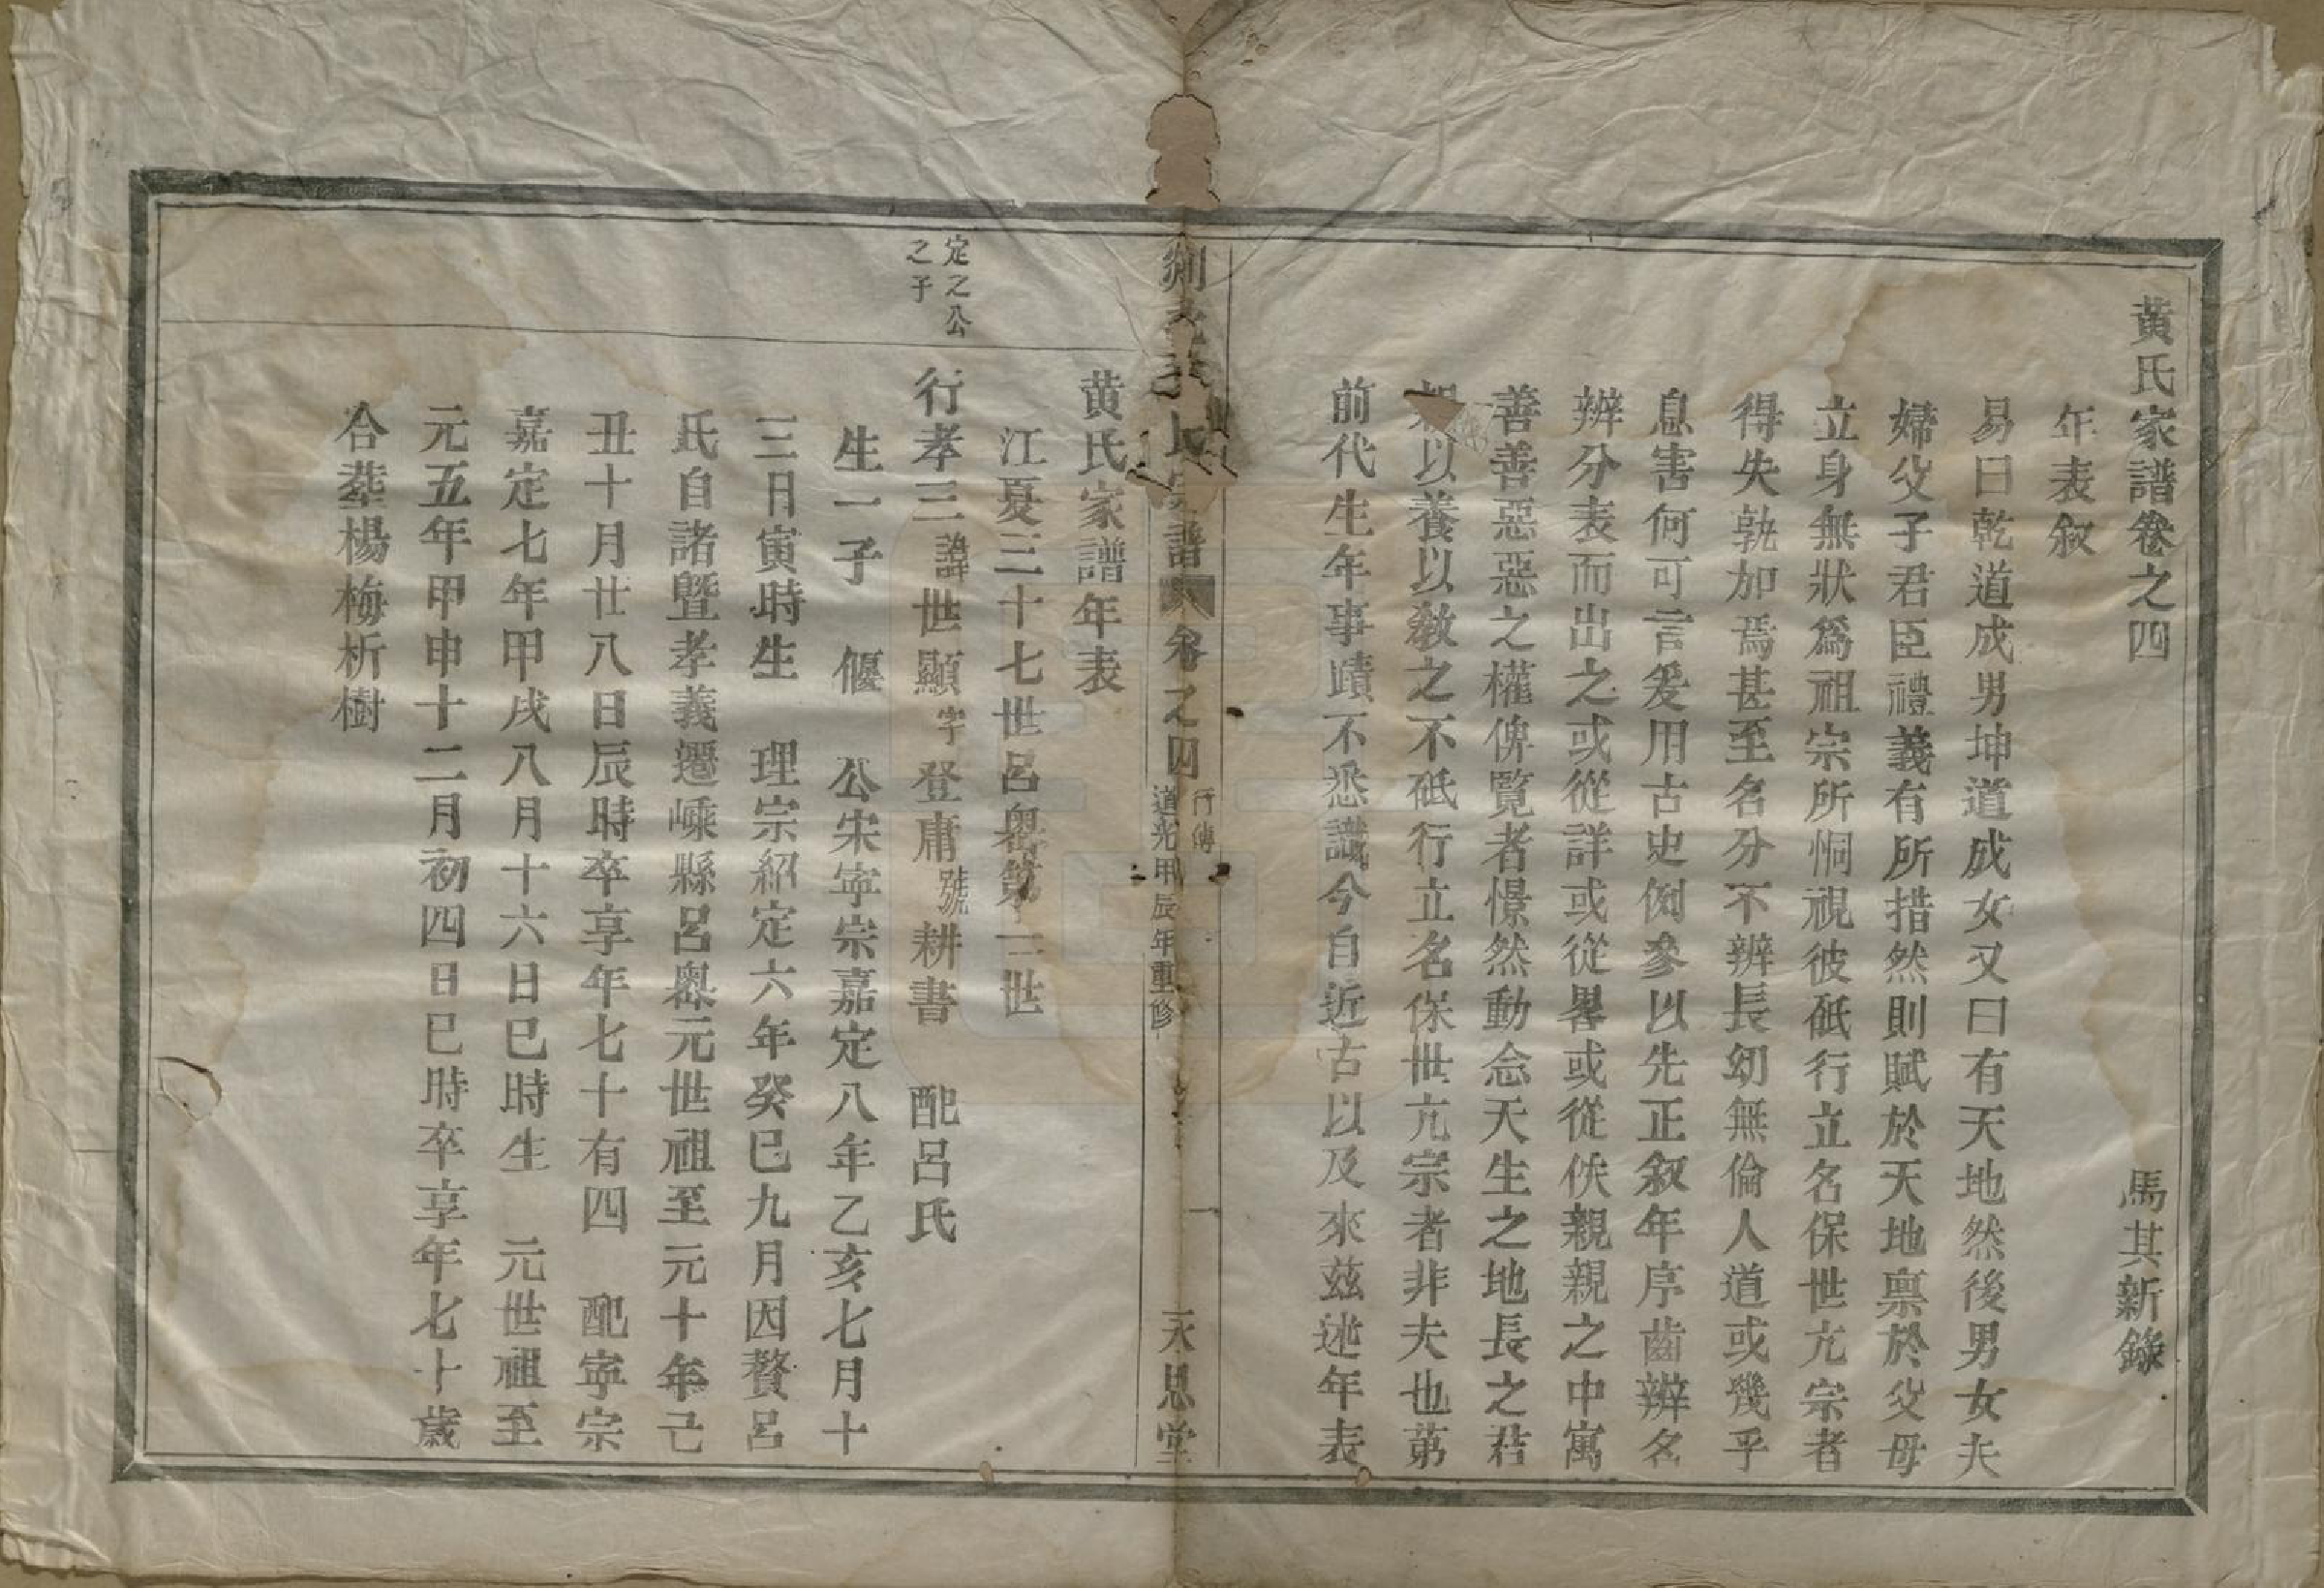 黃氏家譜卷之四
馬其新錄
年表叙
易曰乾道成男坤道成女又曰有天地然後男女夫
婦父子君臣禮義有所措然則賦於天地禀於父母
立身無狀爲祖宗所恫視彼砥行立名保世亢宗者
得失孰加焉甚至名分不辨長幼無倫人道或幾乎
息害何可言爰用古史例參以先正叙年序齒辨名
辨分表而出之或從詳或從畧或從佚親親之中寓
善善惡惡之權俾覽者憬然動念天生之地長之君
以養以教之不砥行立名保世亢宗者非夫也第
前代生年事蹟不悉識今自近古以及來茲述年表
氏 譜 卷之四
行傳
道光甲辰年重修
一
永思堂
黄氏家譜年表
江夏三十七世呂嶴第一世
定之公
之子
行孝三諱世顯字登庸號耕書 配呂氏
生一子 偃 公宋寜宗嘉定八年乙亥七月十
三日寅時生 理宗紹定六年癸巳九月因贅呂
氏自諸暨孝義遷嵊縣呂嶴元世祖至元十年己
丑十月廿八日辰時卒享年七十有四 配寜宗
嘉定七年甲戌八月十六日巳時生 元世祖至
元五年甲申十二月初四日巳時卒享年七十歲
合塟楊梅析樹